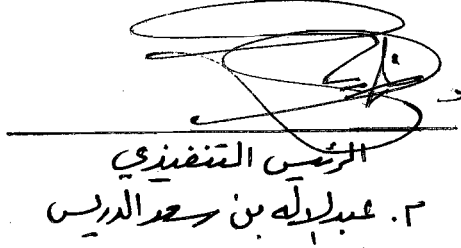 الرئيس التنفيذي
م. عبدالإله بن سعد الدريس